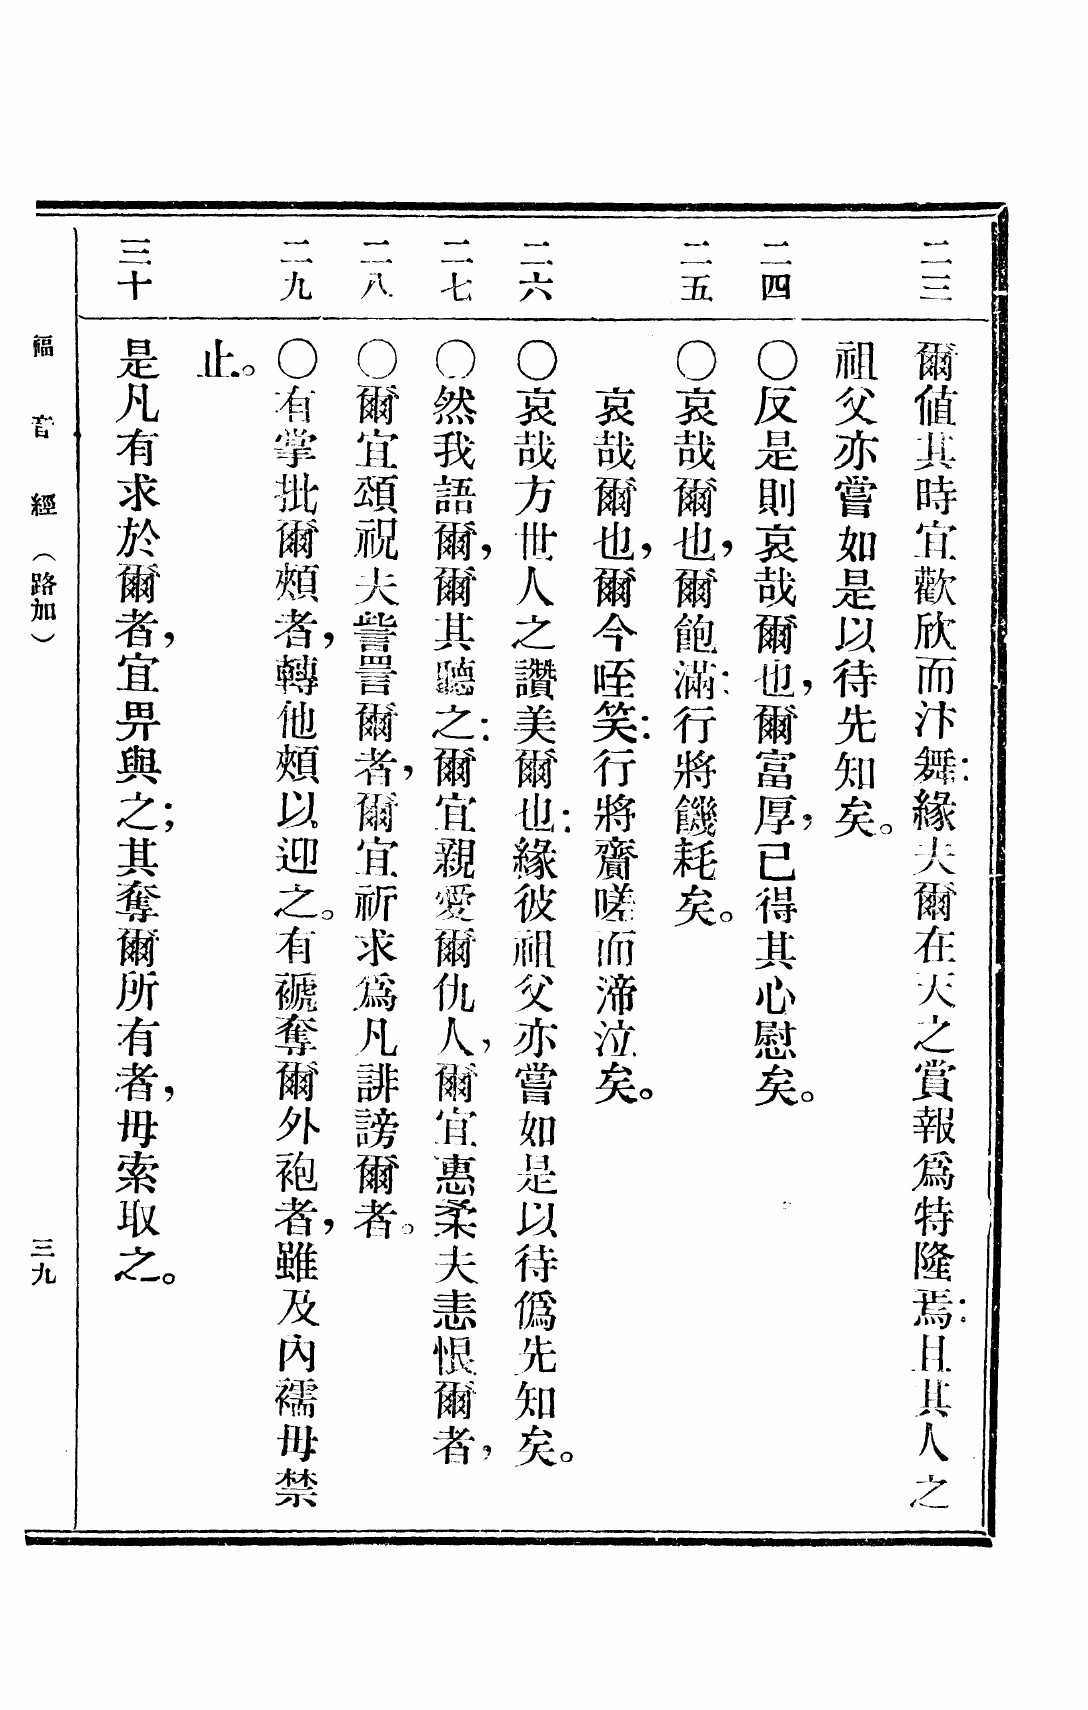 二三
爾值其時宜歡欣而汴舞:緣夫爾在天之賞報爲特隆焉:且其人之
祖父亦嘗如是以待先知矣。
二四
〇反是則哀哉爾也,爾富厚,已得其心慰矣。
二五
〇哀哉爾也,爾飽滿:行將饑耗矣。
哀哉爾也,爾今咥笑:行將齎嗟而渧泣矣。
二六
〇哀哉方世人之讚美爾也:緣彼祖父亦嘗如是以待僞先知矣。
二七
〇然我語爾,爾其聽之:爾宜親愛爾仇人,爾宜惠柔夫恚恨爾者,
二八
〇爾宜頌祝夫訾詈爾者,爾宜祈求爲凡誹謗爾者。
二九
〇有掌批爾頰者,轉他頰以迎之。有褫奪爾外袍者,雖及內襦毋禁
止。
三十
是凡有求於爾者,宜畀與之;其奪爾所有者,毋索取之。
福音經(路加)
三九